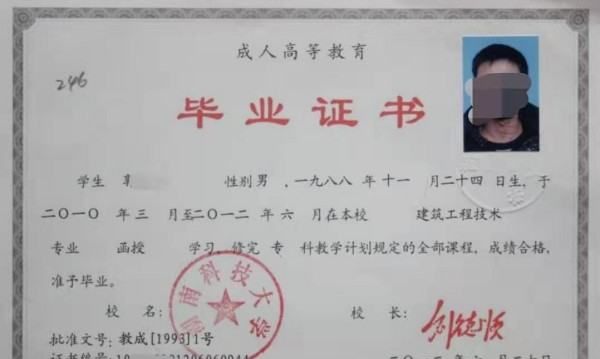 成人高等教育
246
毕业证书
学生 性别男 ,一九八八 年十一 月二十四 日生,于
二〇一〇 年三 月至二〇一二 年六 月在本校 建筑工程技术
专业 函授 学习,修完 专 科教学计划规定的全部课程,成绩合格,
准予毕业。
湖南科技大学
校 名: 校 长:
批准文号:教成[1993]1号